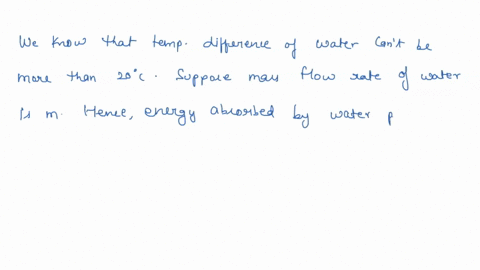 We know that temp. difference of water can't be
more than 20°c. Suppose mass flow rate of water
is m. Hence, energy absorbed by water p